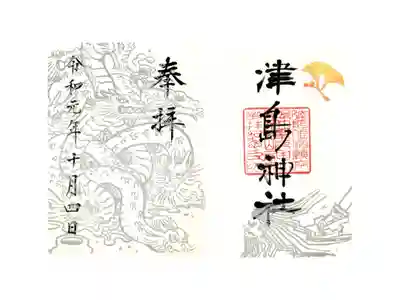 津島神社
奉拝
令和元年十月四日